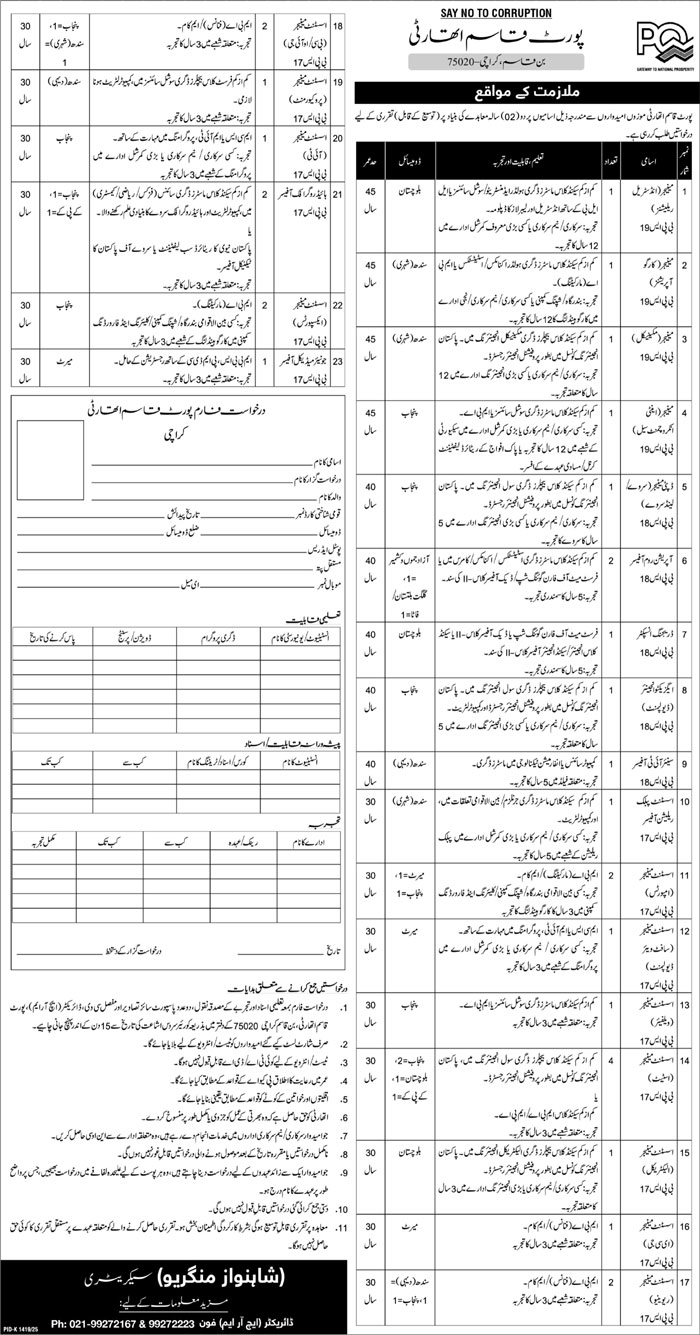 SAY NO TO CORRUPTION
پورٹ قاسم اتھارٹی
بن قاسم، کراچی-75020
PQA
GATEWAY TO NATIONAL PROSPERITY
ملازمت کے مواقع
پورٹ قاسم اتھارٹی موزوں امیدواروں سے مندرجہ ذیل اسامیوں پر دو (02) سالہ معاہدے کی بنیاد پر (توسیع کے قابل) تقرری کے لیے
درخواستیں طلب کر رہی ہے۔
نمبر شمار اسامی تعداد تعلیم، قابلیت اور تجربہ ڈومیسائل حد عمر
1 مینیجر (انڈسٹریل ریلیشنز) بی پی ایس 19 1 بلوچستان 45 سال
کم از کم سیکنڈ کلاس ماسٹرز ڈگری ہولڈر ایڈمنسٹریشن/سوشل سائنسز یا ایل
ایل بی کے ساتھ انڈسٹریل اور لیبر لاز کا ڈپلومہ۔
تجربہ: سرکاری/نیم سرکاری یا کسی بڑی معروف کمرشل ادارے میں
12 سال کا تجربہ۔
2 مینیجر (کارگو آپریشنز) بی پی ایس 19 1 سندھ (شہری) 45 سال
کم از کم سیکنڈ کلاس ماسٹرز ڈگری ہولڈر اکنامکس/اسٹیٹسٹکس یا ایم بی
اے (مارکیٹنگ)۔
تجربہ: بندرگاہ/شپنگ کمپنی/سرکاری/نیم سرکاری/نجی ادارے میں
کارگو ہینڈلنگ کا 12 سال کا تجربہ۔
3 مینیجر (مکینیکل) بی پی ایس 19 1 سندھ (شہری) 45 سال
کم از کم سیکنڈ کلاس ماسٹرز ڈگری مکینیکل انجینئرنگ میں۔ پاکستان
انجینئرنگ کونسل میں بطور پروفیشنل انجینئر رجسٹرڈ۔
تجربہ: سرکاری/نیم سرکاری یا کسی بڑی انجینئرنگ ادارے میں 12
سال کا متعلقہ تجربہ۔
4 مینیجر (اینٹی انکروچمنٹ سیل) بی پی ایس 19 1 پنجاب 45 سال
کم از کم سیکنڈ کلاس ماسٹرز ڈگری سوشل سائنسز یا ایم بی اے۔
تجربہ: کسی سرکاری/نیم سرکاری یا بڑی کمرشل ادارے میں سیکیورٹی
کے شعبے میں 12 سال کا تجربہ یا پاک افواج کے ریٹائرڈ لیفٹیننٹ
کرنل/مساوی عہدے کے افسر۔
5 ڈپٹی مینیجر (سروے/لینڈ سروے) بی پی ایس 18 1 پنجاب 40 سال
کم از کم سیکنڈ کلاس بیچلرز ڈگری سول انجینئرنگ میں۔ پاکستان
انجینئرنگ کونسل میں بطور پروفیشنل انجینئر رجسٹرڈ۔
تجربہ: سرکاری/نیم سرکاری یا کسی بڑی انجینئرنگ ادارے میں 5
سال کا سروے کا تجربہ۔
6 آپریشن روم آفیسر بی پی ایس 18 2 آزاد جموں و کشمیر =1، گلگت بلتستان/فاٹا =1 40 سال
کم از کم سیکنڈ کلاس ماسٹرز ڈگری اسٹیٹسٹکس/اکنامکس/کامرس میں یا
فرسٹ میٹ آف فارن گوئنگ شپ/ڈیک آفیسر کلاس-II کی سند۔
تجربہ: 5 سال کا سمندری تجربہ۔
7 ڈریجنگ انسپکٹر بی پی ایس 18 1 بلوچستان 40 سال
فرسٹ میٹ آف فارن گوئنگ شپ یا ڈیک آفیسر کلاس-II یا سیکنڈ
کلاس انجینئر/سیکنڈ انجینئر آفیسر کلاس-II کی سند۔
تجربہ: 5 سال کا سمندری تجربہ۔
8 ایگزیکٹو انجینئر (ڈیولپمنٹ) بی پی ایس 18 1 پنجاب 40 سال
کم از کم سیکنڈ کلاس بیچلرز ڈگری سول انجینئرنگ میں۔ پاکستان
انجینئرنگ کونسل میں بطور پروفیشنل انجینئر رجسٹرڈ اور کمپیوٹر لٹریٹ۔
تجربہ: سرکاری/نیم سرکاری یا کسی بڑی انجینئرنگ ادارے میں 5
سال کا متعلقہ تجربہ۔
9 سینئر آئی ٹی آفیسر بی پی ایس 18 1 سندھ (دیہی) 40 سال
کمپیوٹر سائنس یا انفارمیشن ٹیکنالوجی میں ماسٹرز ڈگری۔
تجربہ: متعلقہ فیلڈ میں 5 سال کا تجربہ۔
10 اسسٹنٹ پبلک ریلیشن آفیسر بی پی ایس 17 1 سندھ (شہری) 30 سال
کم از کم سیکنڈ کلاس ماسٹرز ڈگری جرنلزم/بین الاقوامی تعلقات میں،
اور کمپیوٹر لٹریٹ۔
تجربہ: کسی سرکاری/نیم سرکاری یا بڑی کمرشل ادارے میں پبلک
ریلیشن کے شعبے میں 5 سال کا تجربہ۔
11 اسسٹنٹ مینیجر (امپورٹس) بی پی ایس 17 2 میرٹ =1، پنجاب =1 30 سال
ایم بی اے (مارکیٹنگ)/ایم کام۔
تجربہ: کسی بین الاقوامی بندرگاہ/شپنگ کمپنی/کلیئرنگ اینڈ فارورڈنگ
کمپنی میں 3 سال کا کارگو ہینڈلنگ کا تجربہ۔
12 اسسٹنٹ مینیجر (سافٹ ویئر ڈیولپمنٹ) بی پی ایس 17 1 میرٹ 30 سال
ایم سی ایس یا ایم آئی ٹی، پروگرامنگ میں مہارت کے ساتھ۔
تجربہ: کسی سرکاری/نیم سرکاری یا بڑی کمرشل ادارے میں
پروگرامنگ کے شعبے میں 3 سال کا تجربہ۔
13 اسسٹنٹ مینیجر (ویلفیئر) بی پی ایس 17 1 پنجاب 30 سال
کم از کم سیکنڈ کلاس ماسٹرز ڈگری سوشل سائنسز یا ایم بی اے۔
تجربہ: متعلقہ شعبے میں 3 سال کا تجربہ۔
14 اسسٹنٹ مینیجر (اسٹیٹ) بی پی ایس 17 4 پنجاب =2، بلوچستان =1، کے پی کے =1 30 سال
کم از کم سیکنڈ کلاس بیچلرز ڈگری سول انجینئرنگ میں، پاکستان
انجینئرنگ کونسل میں بطور پروفیشنل انجینئر رجسٹرڈ۔
یا
کم از کم سیکنڈ کلاس ایم بی اے/ایم پی اے۔
تجربہ: متعلقہ شعبے میں 3 سال کا تجربہ۔
15 اسسٹنٹ مینیجر (الیکٹریکل) بی پی ایس 17 1 بلوچستان 30 سال
کم از کم سیکنڈ کلاس بیچلرز ڈگری الیکٹریکل انجینئرنگ میں۔ پاکستان
انجینئرنگ کونسل میں بطور پروفیشنل انجینئر رجسٹرڈ۔
تجربہ: سرکاری/نیم سرکاری یا کسی بڑی انجینئرنگ ادارے میں 3 سال
کا متعلقہ تجربہ۔
16 اسسٹنٹ مینیجر (ای سی جی) بی پی ایس 17 1 میرٹ 30 سال
ایم بی اے (فنانس)/ایم کام۔
تجربہ: متعلقہ شعبے میں 3 سال کا تجربہ
17 اسسٹنٹ مینیجر (ریونیو) بی پی ایس 17 2 سندھ (دیہی) =1، پنجاب =1 30 سال
ایم بی اے (فنانس)/ایم کام۔
تجربہ: متعلقہ شعبے میں 3 سال کا تجربہ
18 اسسٹنٹ مینیجر (بی سی/او آئی جی) بی پی ایس 17 2 پنجاب =1، سندھ (شہری) =1 30 سال
ایم بی اے (فنانس)/ایم کام۔
تجربہ: متعلقہ شعبے میں 3 سال کا تجربہ
19 اسسٹنٹ مینیجر (پروکیورمنٹ) بی پی ایس 17 1 سندھ (دیہی) 30 سال
کم از کم فرسٹ کلاس بیچلرز ڈگری سوشل سائنسز میں، کمپیوٹر لٹریٹ ہونا
لازمی۔
تجربہ: متعلقہ شعبے میں 3 سال کا تجربہ
20 اسسٹنٹ مینیجر (آئی ٹی) بی پی ایس 17 1 پنجاب 30 سال
ایم سی ایس یا ایم آئی ٹی، پروگرامنگ میں مہارت کے ساتھ۔
تجربہ: کسی سرکاری/نیم سرکاری یا بڑی کمرشل ادارے میں
پروگرامنگ کے شعبے میں 3 سال کا تجربہ۔
21 ہائیڈروگرافک آفیسر بی پی ایس 17 2 پنجاب =1، کے پی کے =1 30 سال
کم از کم سیکنڈ کلاس ماسٹرز ڈگری سائنس (فزکس/ریاضی/کیمسٹری)
میں، کمپیوٹر لٹریٹ اور ہائیڈروگرافک سروے کا بنیادی علم رکھنے والا۔
یا
پاکستان نیوی کا ریٹائرڈ سب لیفٹیننٹ یا سروے آف پاکستان کا
ٹیکنیکل آفیسر۔
تجربہ: متعلقہ شعبے میں 3 سال کا تجربہ
22 اسسٹنٹ مینیجر (ایکسپورٹس) بی پی ایس 17 2 پنجاب 30 سال
ایم بی اے (مارکیٹنگ)۔
تجربہ: کسی بین الاقوامی بندرگاہ/شپنگ کمپنی/کلیئرنگ اینڈ فارورڈنگ
کمپنی میں کارگو ہینڈلنگ کے شعبے میں 3 سال کا تجربہ۔
23 جونیئر میڈیکل آفیسر بی پی ایس 17 1 میرٹ 30 سال
ایم بی بی ایس، پی ایم ڈی سی کے ساتھ رجسٹریشن کے حامل۔
تجربہ: متعلقہ شعبے میں 3 سال کا تجربہ۔
درخواست فارم پورٹ قاسم اتھارٹی
کراچی
اسامی کا نام
درخواست گزار کا نام
والد کا نام
قومی شناختی کارڈ نمبر تاریخ پیدائش
ڈومیسائل ضلع ڈومیسائل
پوسٹل ایڈریس
مستقل پتہ
موبائل نمبر ای میل
تعلیمی قابلیت
انسٹیٹیوٹ/یونیورسٹی کا نام ڈگری پروگرام ڈویژن/پرسنٹیج پاس کرنے کی تاریخ
پیشہ ورانہ قابلیت/اسناد
انسٹیٹیوٹ کا نام کورس/اسناد/ٹریننگ کا نام کب سے کب تک
تجربہ
ادارے کا نام رینک/عہدہ کب سے کب تک مکمل تجربہ
تاریخ درخواست گزار کے دستخط
درخواستیں جمع کرانے سے متعلق ہدایات
1. درخواست فارم بمعہ تعلیمی اسناد اور تجربے کے مصدقہ نقول، دو عدد پاسپورٹ سائز تصاویر اور مفصل سی وی، ڈائریکٹر (ایچ آر ایم)، پورٹ
قاسم اتھارٹی، بن قاسم کراچی 75020 کے دفتر میں بذریعہ کوریئر سروس اشاعت کی تاریخ سے 15 دن کے اندر پہنچ جانی چاہیے۔
2. صرف شارٹ لسٹ کیے گئے امیدواروں کو ٹیسٹ/انٹرویو کے لیے بلایا جائے گا۔
3. ٹیسٹ/انٹرویو کے لیے کوئی ٹی اے/ڈی اے قابل قبول نہیں ہوگا۔
4. عمر میں رعایت کا اطلاق پی کیو اے کے قواعد کے مطابق کیا جائے گا۔
5. اقلیتوں اور خواتین کے کوٹے کو قواعد کے مطابق یقینی بنایا جائے گا۔
6. اتھارٹی کو حق حاصل ہے کہ وہ بھرتی کے عمل کو جزوی یا مکمل طور پر منسوخ کر دے۔
7. جو امیدوار سرکاری/نیم سرکاری اداروں میں خدمات انجام دے رہے ہیں، وہ متعلقہ ادارے سے این او سی حاصل کریں۔
8. نامکمل درخواستیں یا مقررہ تاریخ کے بعد موصول ہونے والی درخواستیں قابل قبول نہیں ہوں گی۔
9. جو امیدوار ایک سے زائد عہدوں کے لیے درخواست دینا چاہتے ہیں، وہ ہر پوسٹ کے لیے علیحدہ لفافے میں درخواست بھیجیں، جس پر واضح
طور پر عہدے کا نام درج ہو۔
10. دستی جمع کرائی گئی درخواستیں قابل قبول نہیں ہوں گی۔
11. معاہدہ پر تقرری قابل توسیع ہوگی بشرط کارکردگی اطمینان بخش ہو۔ تقرری حاصل کرنے والے کو متعلقہ عہدے پر مستقل تقرری کا کوئی حق
حاصل نہیں ہوگا۔
(شاہنواز منگریو) سیکریٹری
مزید معلومات کے لیے:
ڈائریکٹر (ایچ آر ایم) فون Ph: 021-99272167 & 99272223
PID-K 1419/25